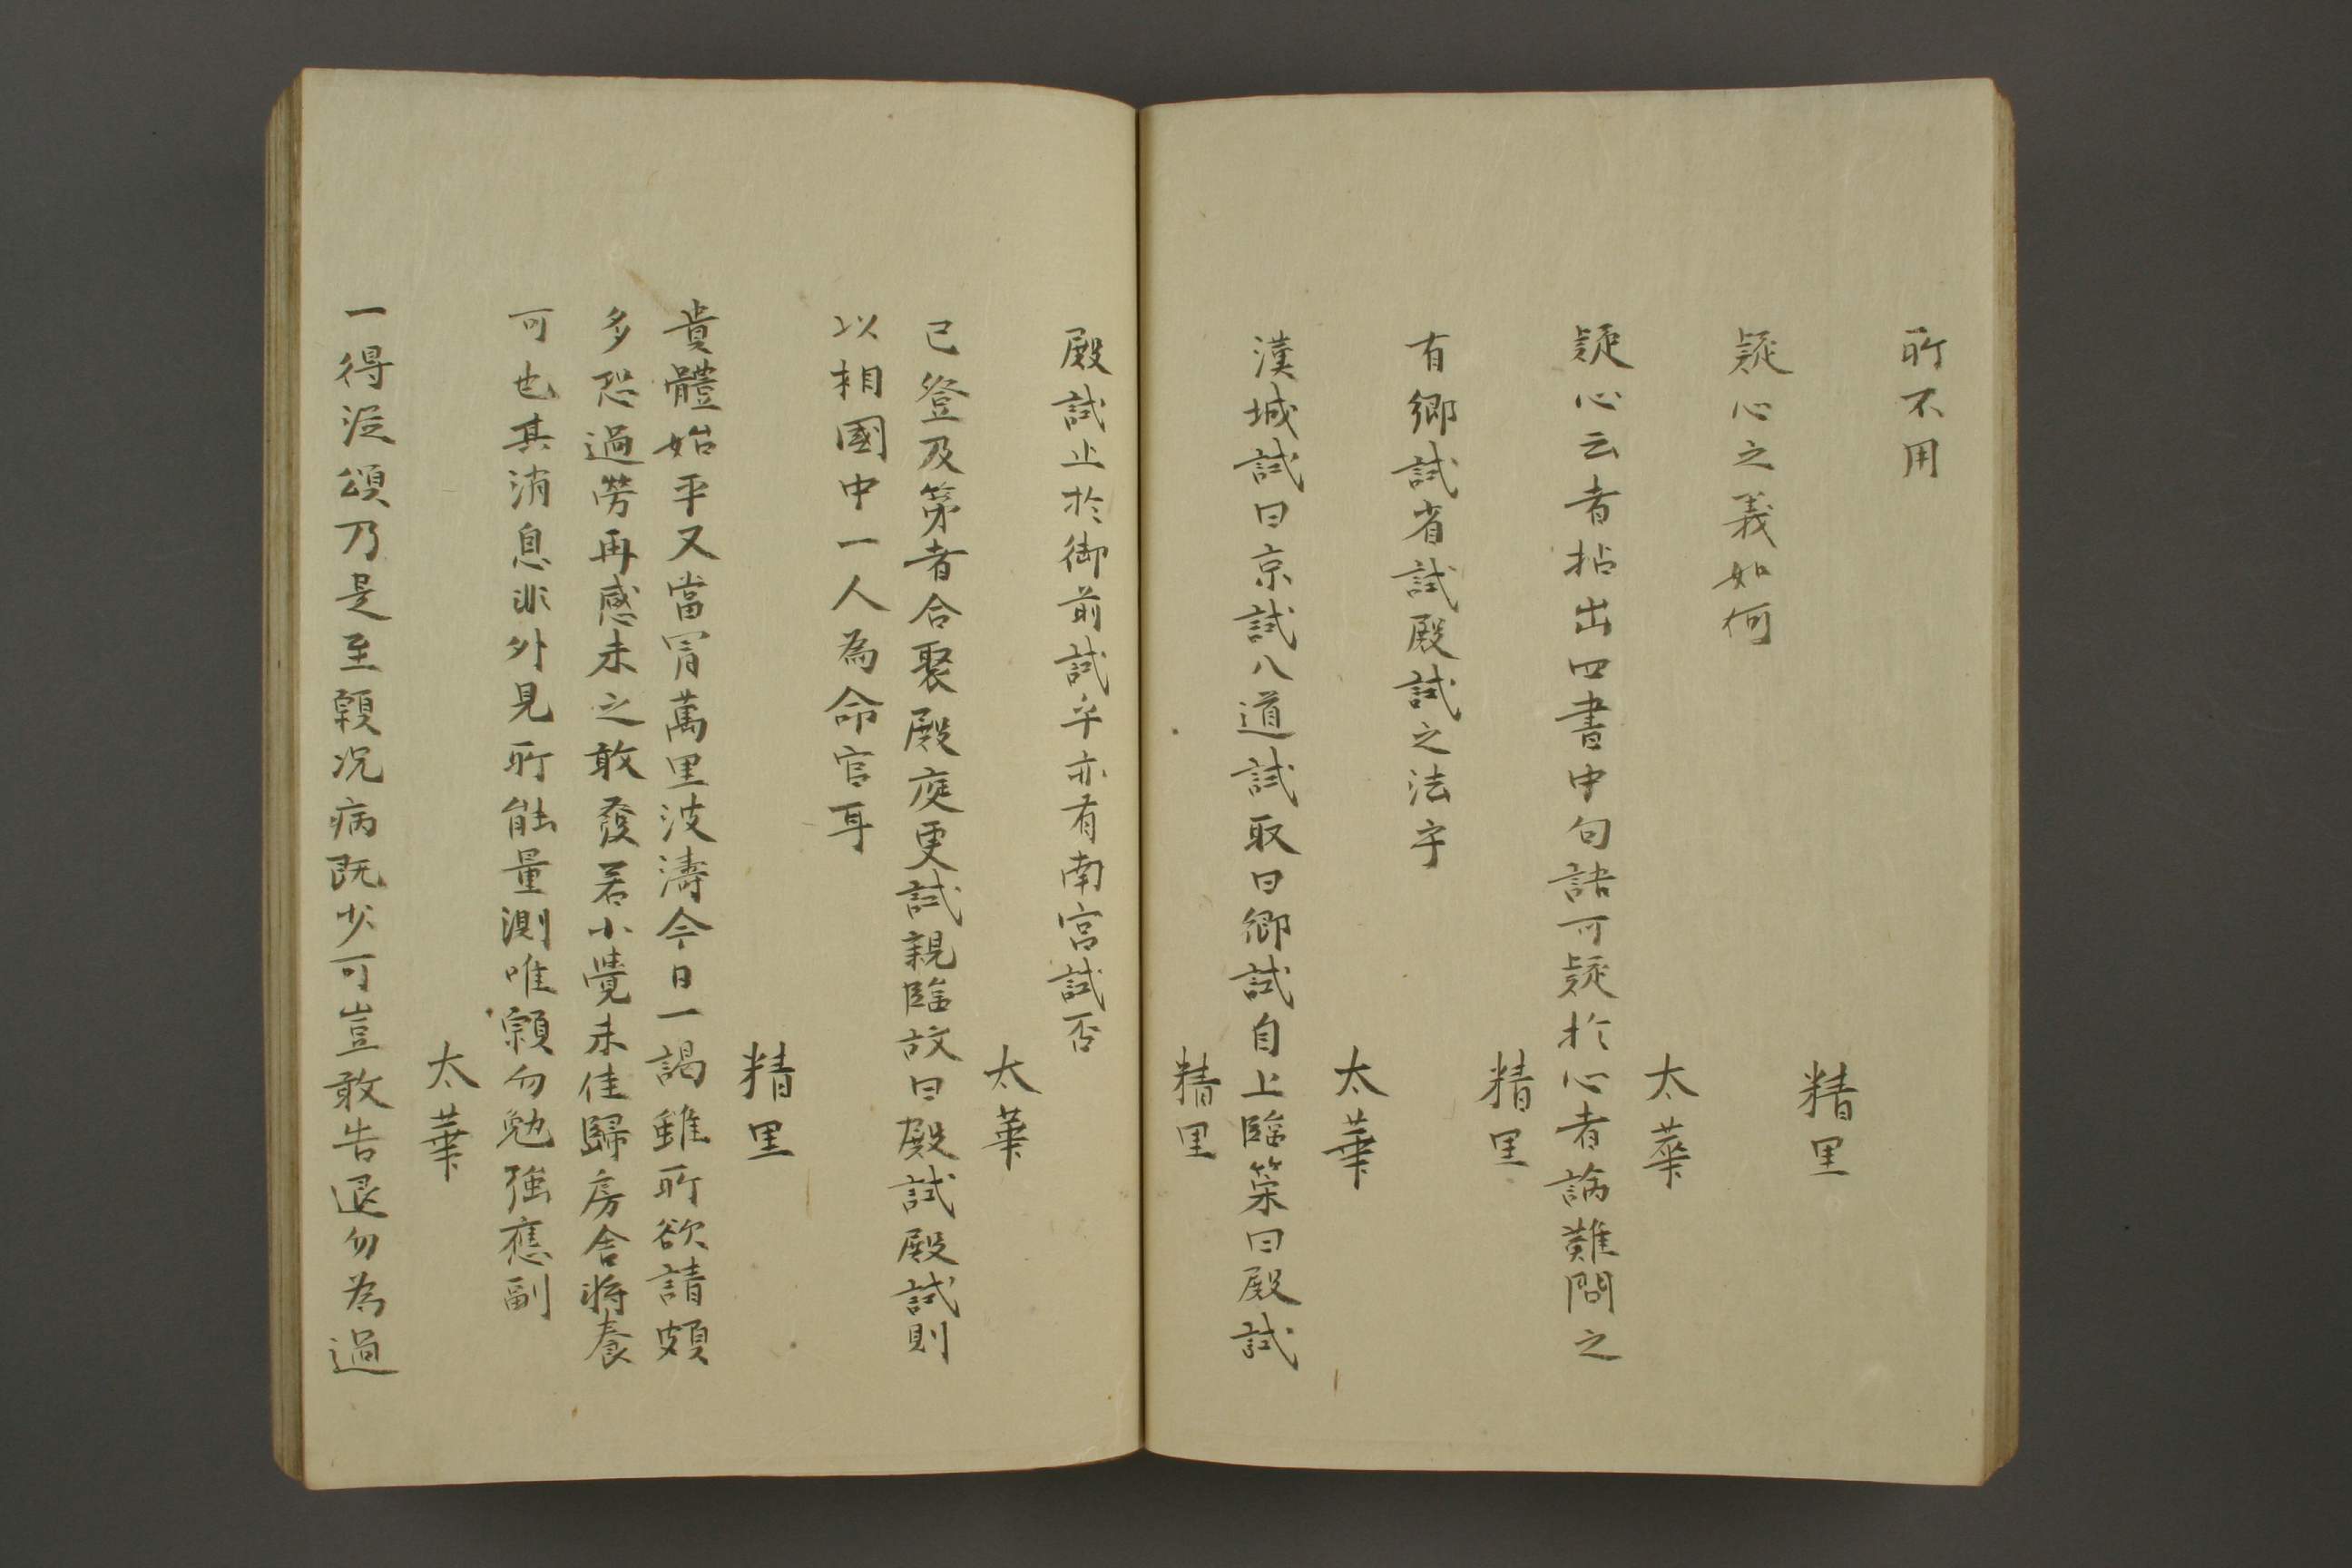 所不用
精里
疑心之義如何
太華
疑心云者拈出四書中句語可疑於心者論難問之
精里
有鄉試省試殿試之法乎
太華
漢城試曰京試八道試取曰鄉試自上臨策曰殿試
精里
殿試止於御前試乎亦有南宮試否
太華
已登及第者合聚殿庭更試親臨故曰殿試殿試則
以相國中一人為命官耳
精里
貴體始平又當冐萬里波濤今日一謁雖所欲請頗
多恐過勞再感未之敢發若小覺未佳歸房舍將養
可也其消息非外見所能量測唯顆勿勉強應副
太華
一得從頌乃是至顆况病既少可豈敢告退勿為過